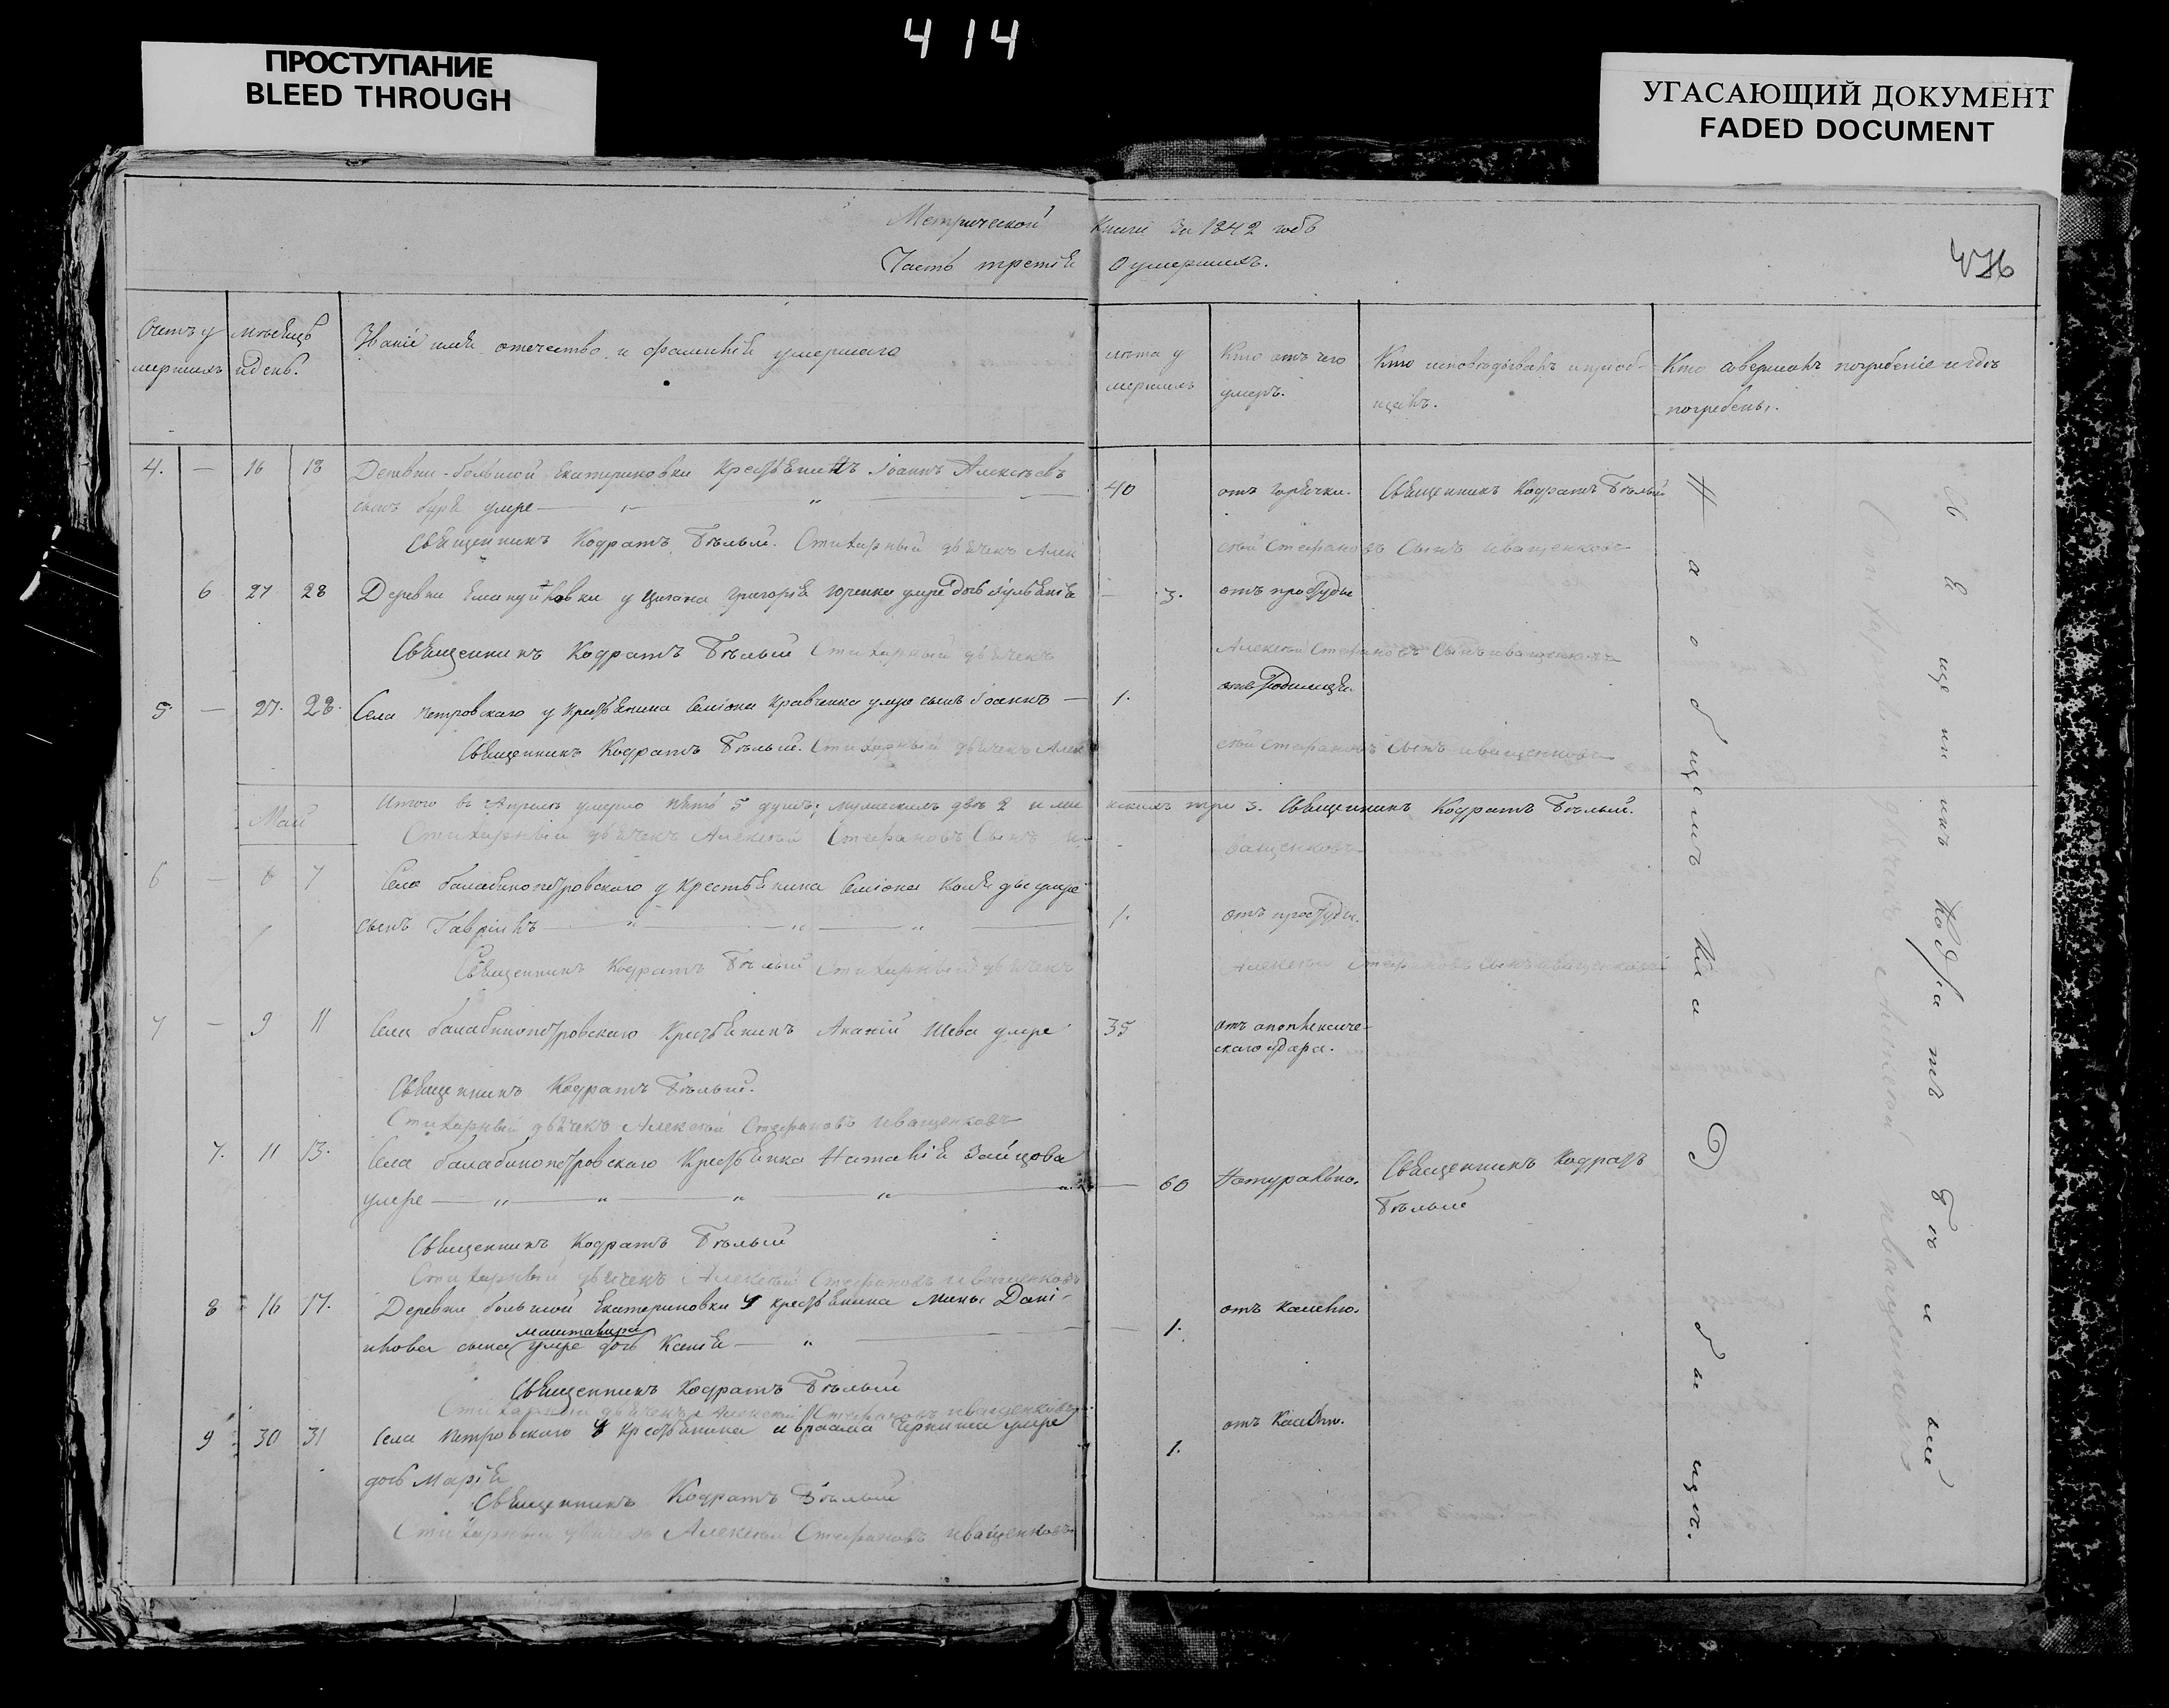 414
ПРОСТУПАНИЕ
BLEED THROUGH
УГАСАЮЩИЙ ДОКУМЕНТ
FADED DOCUMENT
Метрической Книги За 1842 годъ
Часть третія О умершихъ.
Счетъ у мѣсяцъ Званіе имя отечество и фамилія умершаго лѣта у Кто отъ чего Кто исповѣдывалъ и пріоб- Кто совершалъ погребеніе и гдѣ
мершихъ и день. мершихъ умеръ. щалъ. погребены.
4. — 16 18 Деревни большой Екатериновки Крестьянинъ Іоаннъ Алексѣевъ 40 отъ горячки. Священникъ Кодратъ Бѣлый
сынъ умре
Священникъ Кодратъ Бѣлый. Стихарный дьячекъ Алек сѣй Стефановъ Сынъ Иващенковъ
6 27 28 Деревни у Цигана Григорія умре дочь — 3. отъ простуды
Священникъ Кодратъ Бѣлый Стихарный дьячекъ Алексѣй Стефановъ Сынъ Иващенковъ
5 — 27. 28. Села Петровскаго у Крестьянина Семіона Кравченка умре сынъ Іоаннъ — 1. отъ родимца
Священникъ Кодратъ Бѣлый. Стихарный дьячекъ Алек сѣй Стефановъ Сынъ Иващенковъ
Итого въ Апрелѣ умерло пять 5 душъ; мужескихъ двѣ 2 и жен скихъ три 3. Священникъ Кодратъ Бѣлый.
Май
Стихарный дьячекъ Алексѣй Стефановъ Сынъ И ващенковъ
6 — 6 7 Села балабинопетровскаго у Крестьянина Семіона умре
сынъ Гавріилъ 1. отъ простуды.
Священникъ Кодратъ Бѣлый Стихарный дьячекъ Алексѣй Стефановъ Сынъ Иващенковъ
7 — 9 11 Села балабинопетровскаго Крестьянинъ Ананій Шева умре 35 отъ апоплексиче-
скаго удара.
Священникъ Кодратъ Бѣлый.
Стихарный дьячекъ Алексѣй Стефановъ Иващенковъ
7. 11 13. Села балабинопетровскаго Крестьянка Наталія Зайцова — 60 Натурально. Священникъ Кодратъ
умре Бѣлый
Священникъ Кодратъ Бѣлый
Стихарный дьячекъ Алексѣй Стефановъ Иващенковъ
8 16 17. Деревни большой Екатериновки у крестьянина Мины Дани- — 1. отъ кашлю.
маштакира
илова сына умре дочь Ксенія
Священникъ Кодратъ Бѣлый
Стихарный дьячекъ Алексѣй Стефановъ Иващенковъ
9 30 31 Села Петровскаго у Крестьянина Авраама умре 1. отъ Кашлю.
дочь Марія
Священникъ Кодратъ Бѣлый
Стихарный дьячекъ Алексѣй Стефановъ Иващенковъ
На общемъ Кладбищѣ.
Священникъ Кодратъ Бѣлый
Стихарный дьячекъ Алексѣй Иващенковъ